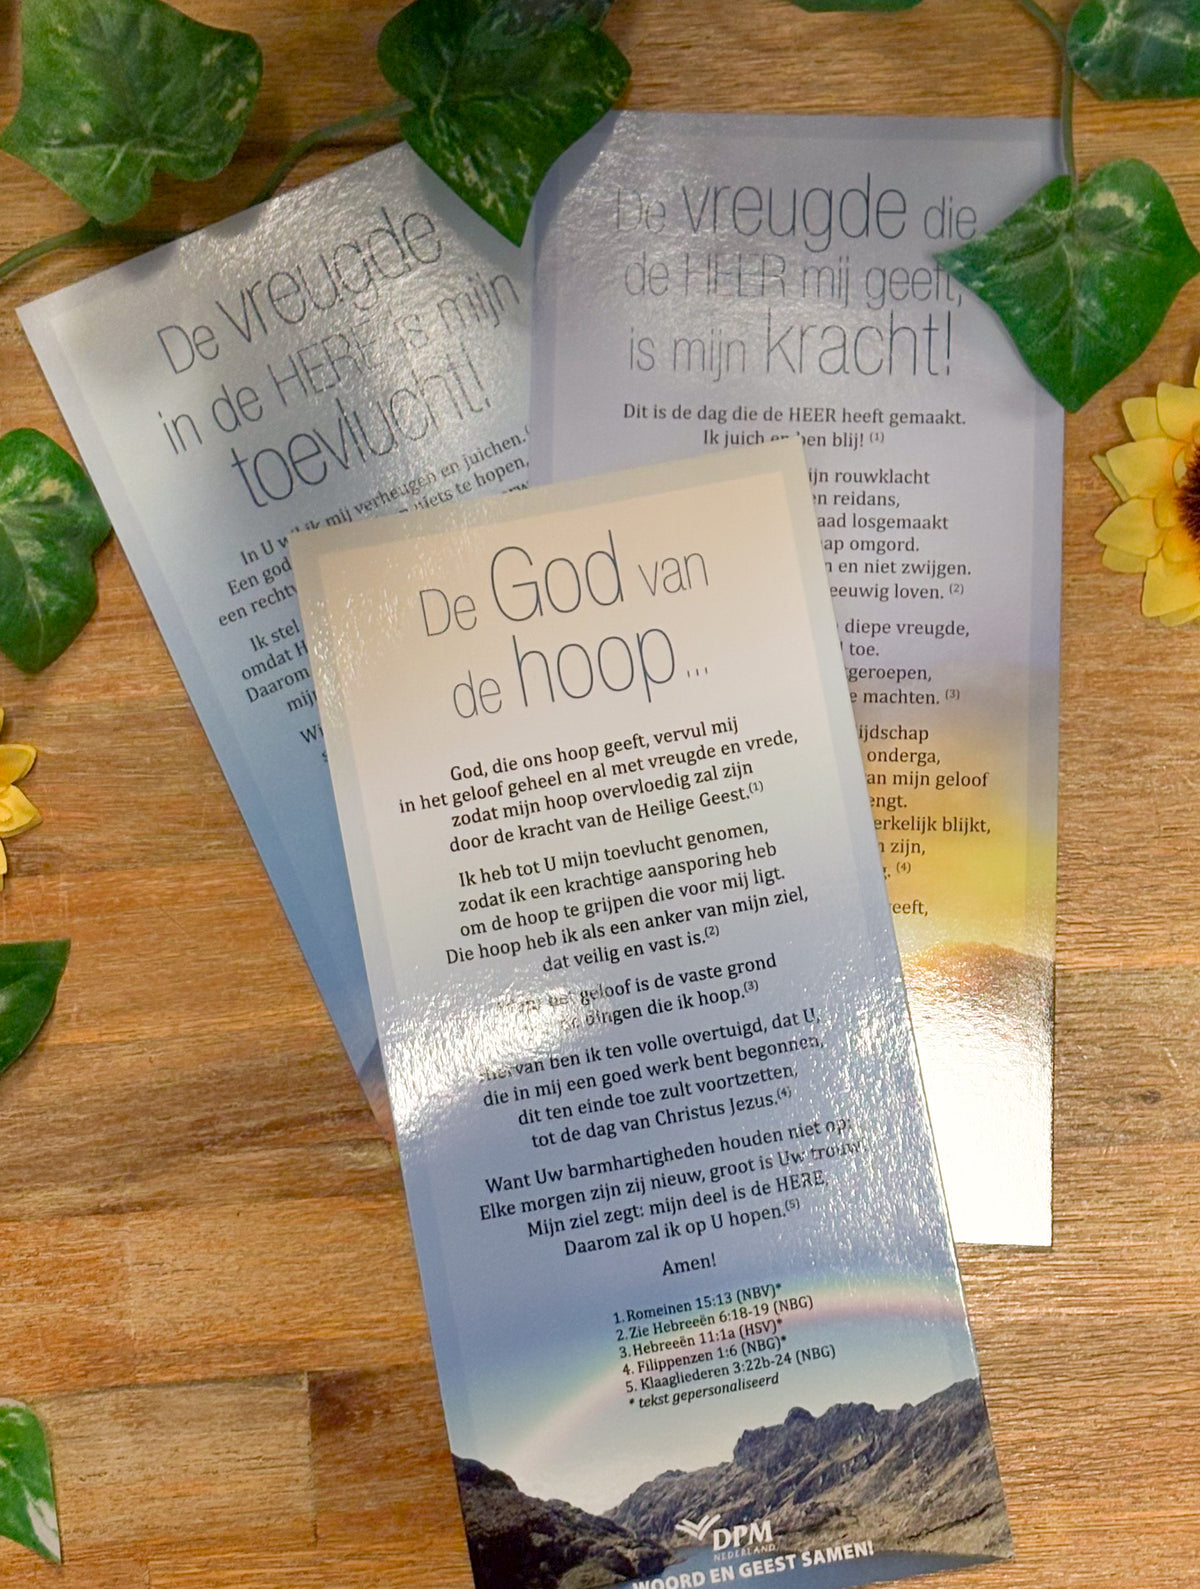 De vreugde
in de HERE is mijn
toevlucht!
In U wil ik mij verheugen en juichen.
niets te hopen,
Een god
een rechtv
Ik stel
omdat H
Daarom
mijn
Wi
De vreugde die
de HEER mij geeft,
is mijn kracht!
Dit is de dag die de HEER heeft gemaakt.
Ik juich en ben blij! (1)
ijn rouwklacht
en reidans,
aad losgemaakt
ap omgord.
n en niet zwijgen.
eeuwig loven. (2)
diepe vreugde,
toe.
geroepen,
e machten. (3)
ijdschap
onderga,
an mijn geloof
engt.
erkelijk blijkt,
zijn,
(4)
eeft,
De God van
de hoop...
God, die ons hoop geeft, vervul mij
in het geloof geheel en al met vreugde en vrede,
zodat mijn hoop overvloedig zal zijn
door de kracht van de Heilige Geest.(1)
Ik heb tot U mijn toevlucht genomen,
zodat ik een krachtige aansporing heb
om de hoop te grijpen die voor mij ligt.
Die hoop heb ik als een anker van mijn ziel,
dat veilig en vast is.(2)
geloof is de vaste grond
dingen die ik hoop.(3)
Hiervan ben ik ten volle overtuigd, dat U,
die in mij een goed werk bent begonnen,
dit ten einde toe zult voortzetten,
tot de dag van Christus Jezus.(4)
Want Uw barmhartigheden houden niet op;
Elke morgen zijn zij nieuw, groot is Uw trouw!
Mijn ziel zegt: mijn deel is de HERE,
Daarom zal ik op U hopen.(5)
Amen!
1. Romeinen 15:13 (NBV)*
2. Zie Hebreeën 6:18-19 (NBG)
3. Hebreeën 11:1a (HSV)*
4. Filippenzen 1:6 (NBG)*
5. Klaagliederen 3:22b-24 (NBG)
* tekst gepersonaliseerd
DPM
NEDERLAND
WOORD EN GEEST SAMEN!